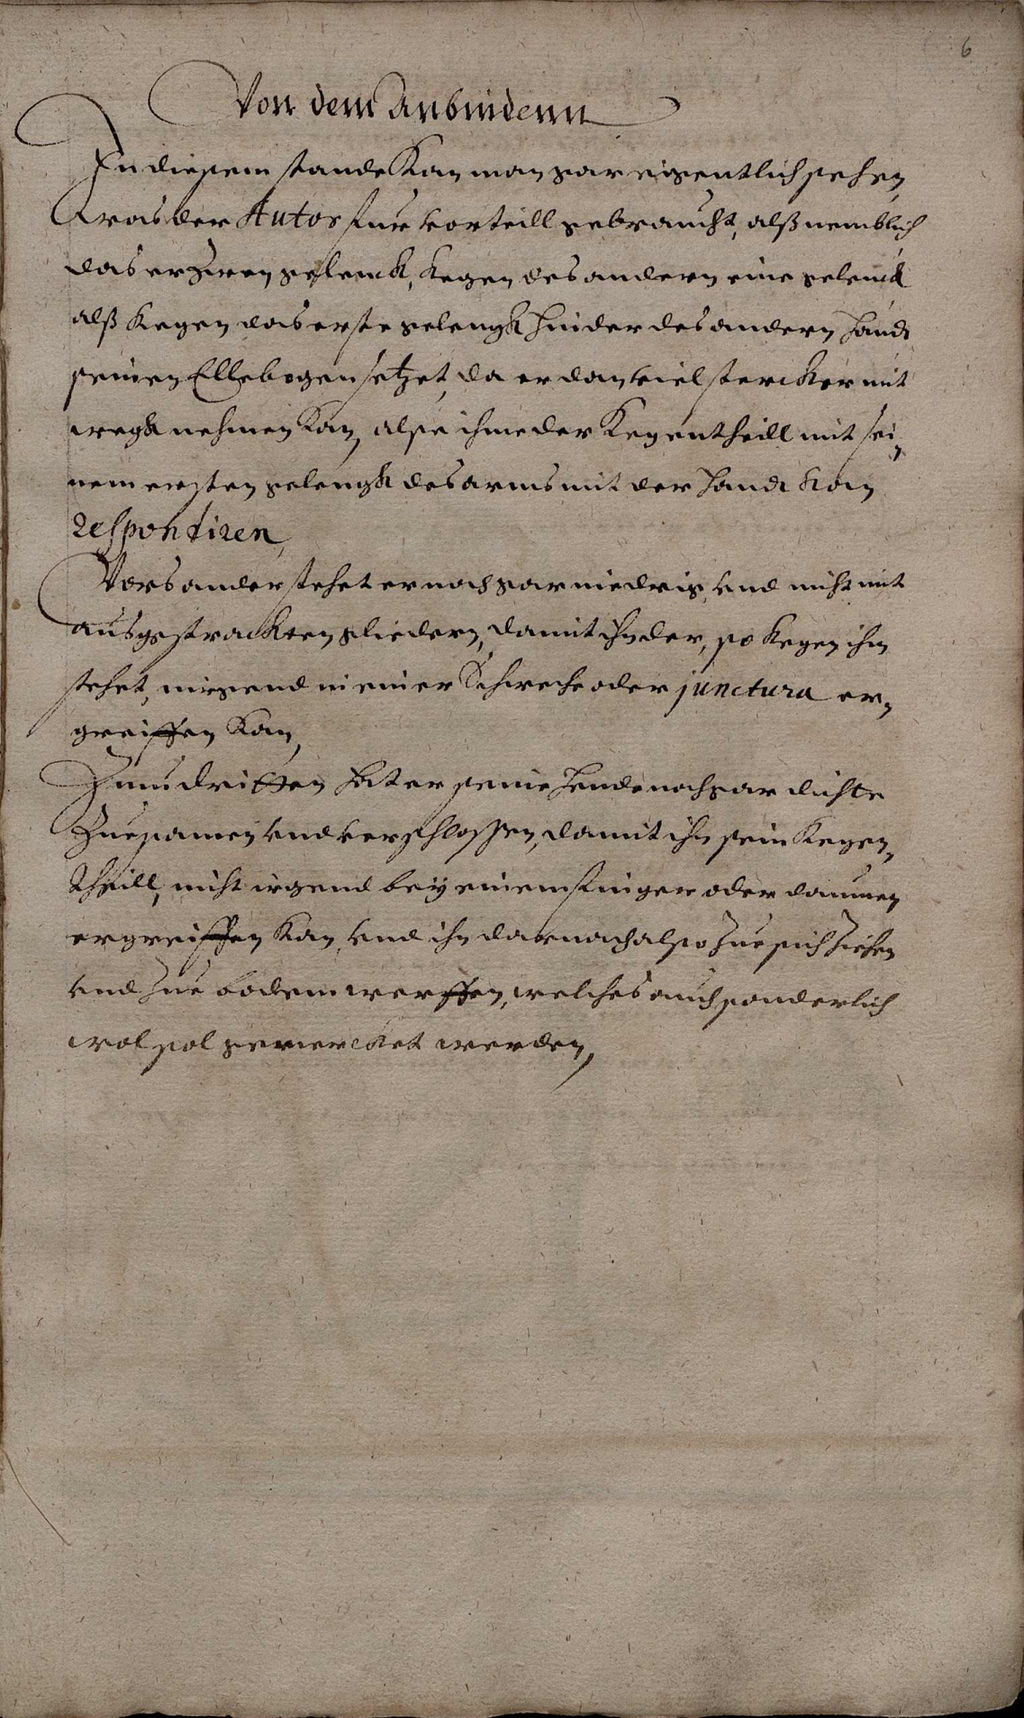 6
Von dem Anbindenn
In diesem stande Kan man gar eigentlich sehen,
was der Autor fur vorteill gebraucht, alß nemblich
das er zween gelenck, kegen des andern eine gelenck
alß kegen das erste gelengk hinder des andern handt
seinen Ellebogen setzet, da er dan viel stercker mit
wegk nehmen Kan, alse ihme der Kegentheill mit sei„
nem ersten gelengk des arms mit der handt kan
respondiren,
Vors ander stehet er noch gar niedrig, vnd nicht mit
ausgestrackten gliedern, damit ihn der, so kegen ihm
stehet, nirgend in einer Schweche oder junctura er„
greiffen Kan,
Zum dritten hat er seine hende noch gar dichte
Zuesamen vnd verschlossen, damit ihn sein Kegen„
theill, nicht irgend bey einem finger oder daumen
ergreiffen Kan, vnd ihn darnach also zue sich ziehen
vnd zue bodem werffen, welches auch sonderlich
wol sol gemercket werden,